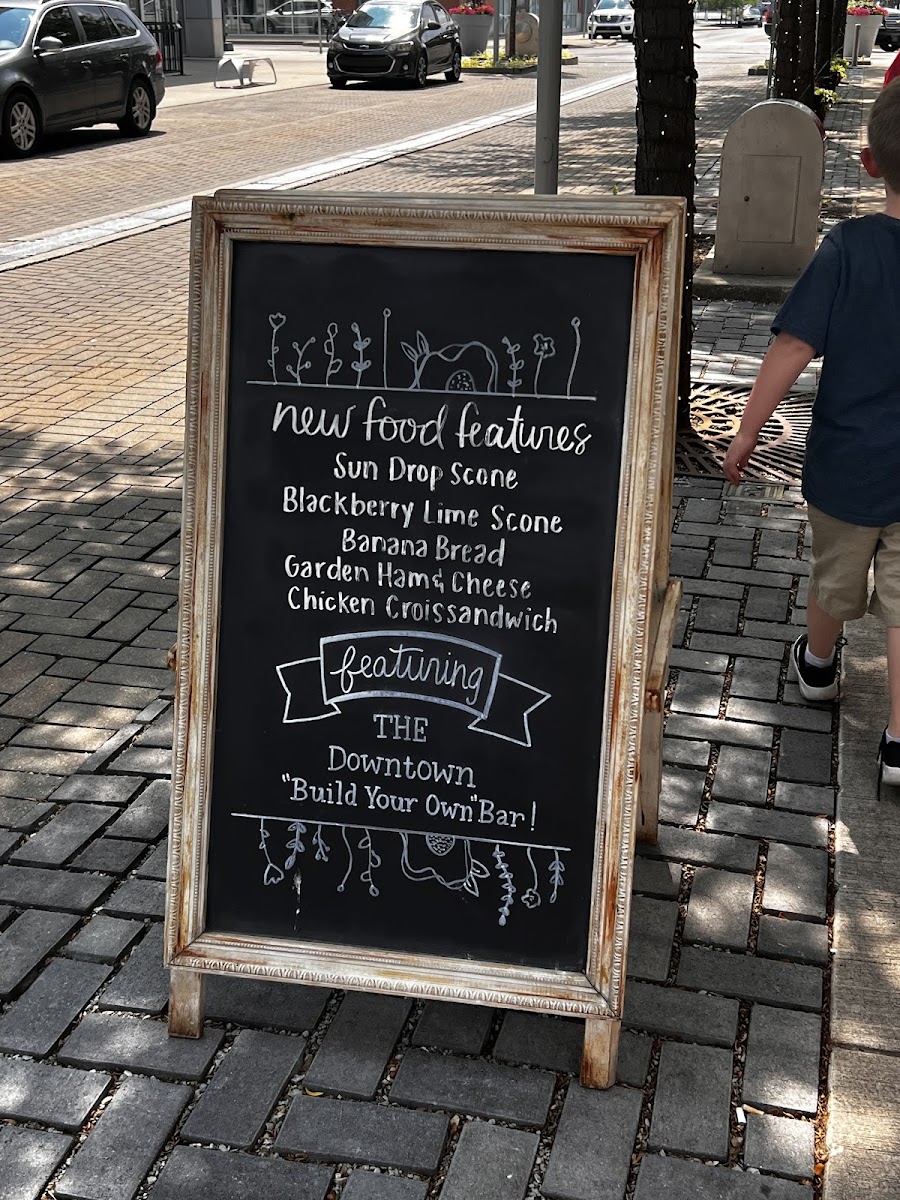 new food features
Sun Drop Scone
Blackberry Lime Scone
Banana Bread
Garden Ham & Cheese
Chicken Croissandwich
featuring
THE
Downtown
"Build Your Own" Bar!